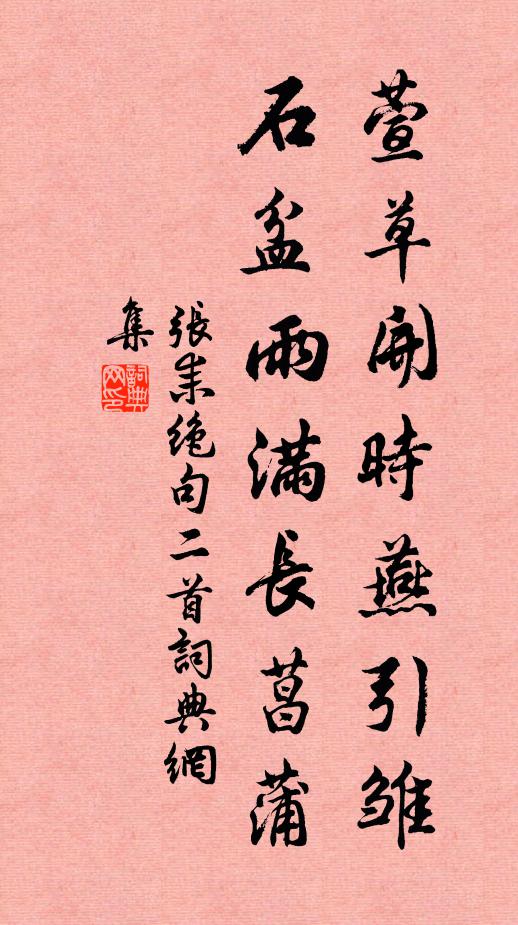 萱草開時燕引雛
石盆雨滿長菖蒲
張耒絕句二首詞典網
集
詞典
网印